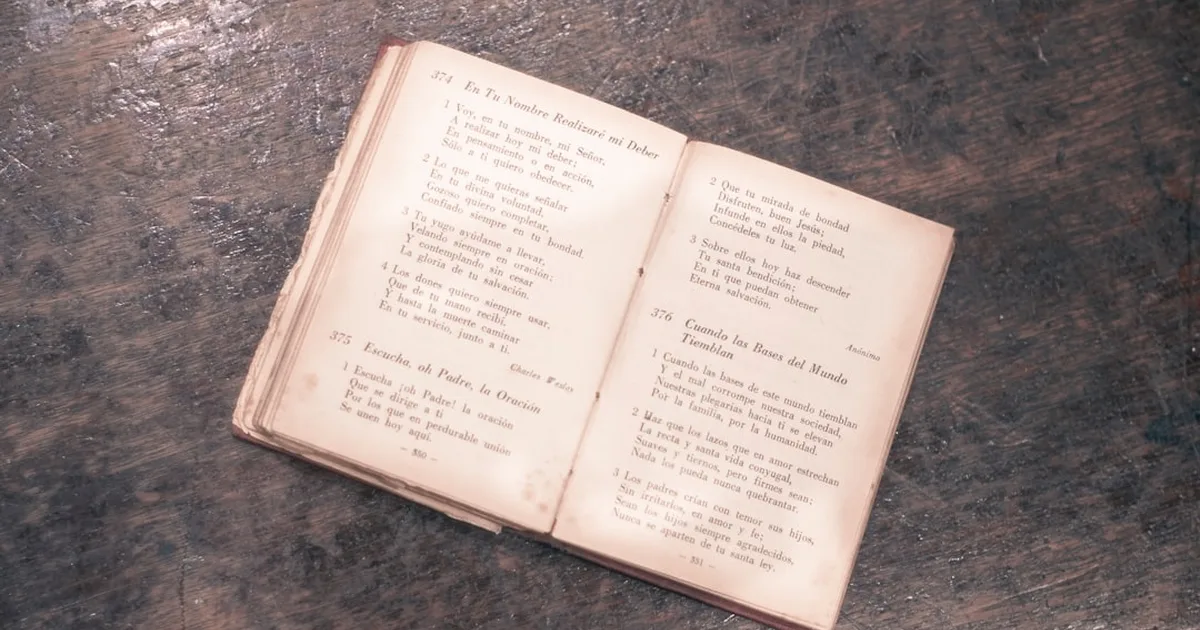 374 En Tu Nombre Realizaré mi Deber
1 Voy, en tu nombre, mi Señor,
A realizar hoy mi deber;
En pensamiento o en acción,
Sólo a ti quiero obedecer.
2 Lo que me quieras señalar
En tu divina voluntad,
Gozoso quiero completar,
Confiado siempre en tu bondad.
3 Tu yugo ayúdame a llevar,
Velando siempre en oración;
Y contemplando sin cesar
La gloria de tu salvación.
4 Los dones quiero siempre usar,
Que de tu mano recibí,
Y hasta la muerte caminar
En tu servicio, junto a ti.
Charles Wesley
375 Escucha, oh Padre, la Oración
1 Escucha ¡oh Padre! la oración
Que se dirige a ti
Por los que en perdurable unión
Se unen hoy aquí.
— 350 —
2 Que tu mirada de bondad
Disfruten, buen Jesús;
Infunde en ellos la piedad,
Concédeles tu luz.
3 Sobre ellos hoy haz descender
Tu santa bendición;
En ti que puedan obtener
Eterna salvación.
Anónimo
376 Cuando las Bases del Mundo
Tiemblan
1 Cuando las bases de este mundo tiemblan
Y el mal corrompe nuestra sociedad,
Nuestras plegarias hacia ti se elevan
Por la familia, por la humanidad.
2 Haz que los lazos que en amor estrechan
La recta y santa vida conyugal,
Suaves y tiernos, pero firmes sean;
Nada los pueda nunca quebrantar.
3 Los padres crían con temor sus hijos,
Sin irritarlos, en amor y fe;
Sean los hijos siempre agradecidos,
Nunca se aparten de tu santa ley.
— 351 —